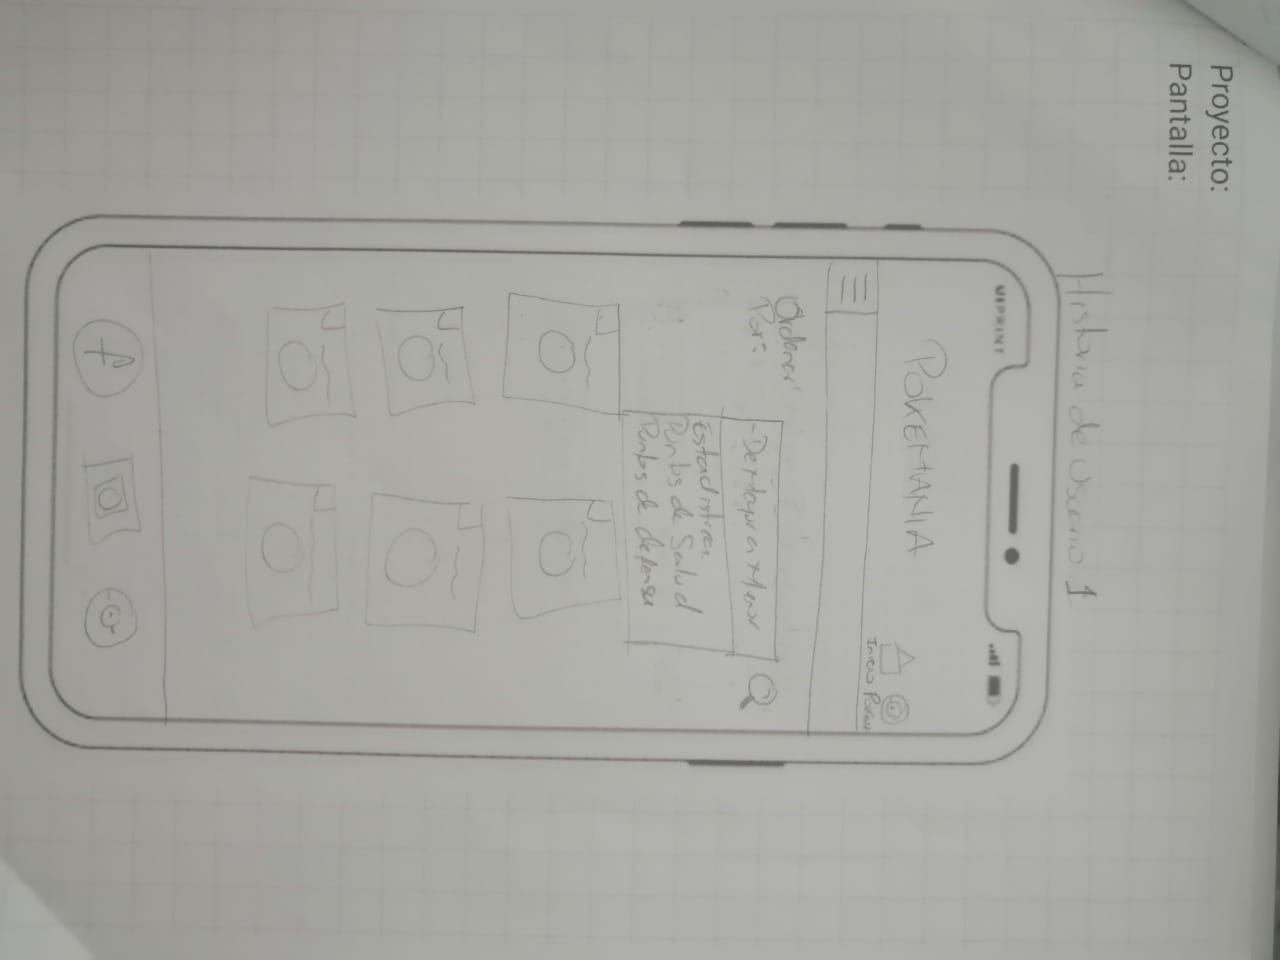 Proyecto:
Pantalla:
Historia de Usuario 1
UIPRINT
POKEMANIA
Inicio
Ordenar
Por:
- De Mayor a Menor
Estadistica
Puntos de Salud
Puntos de defensa
f